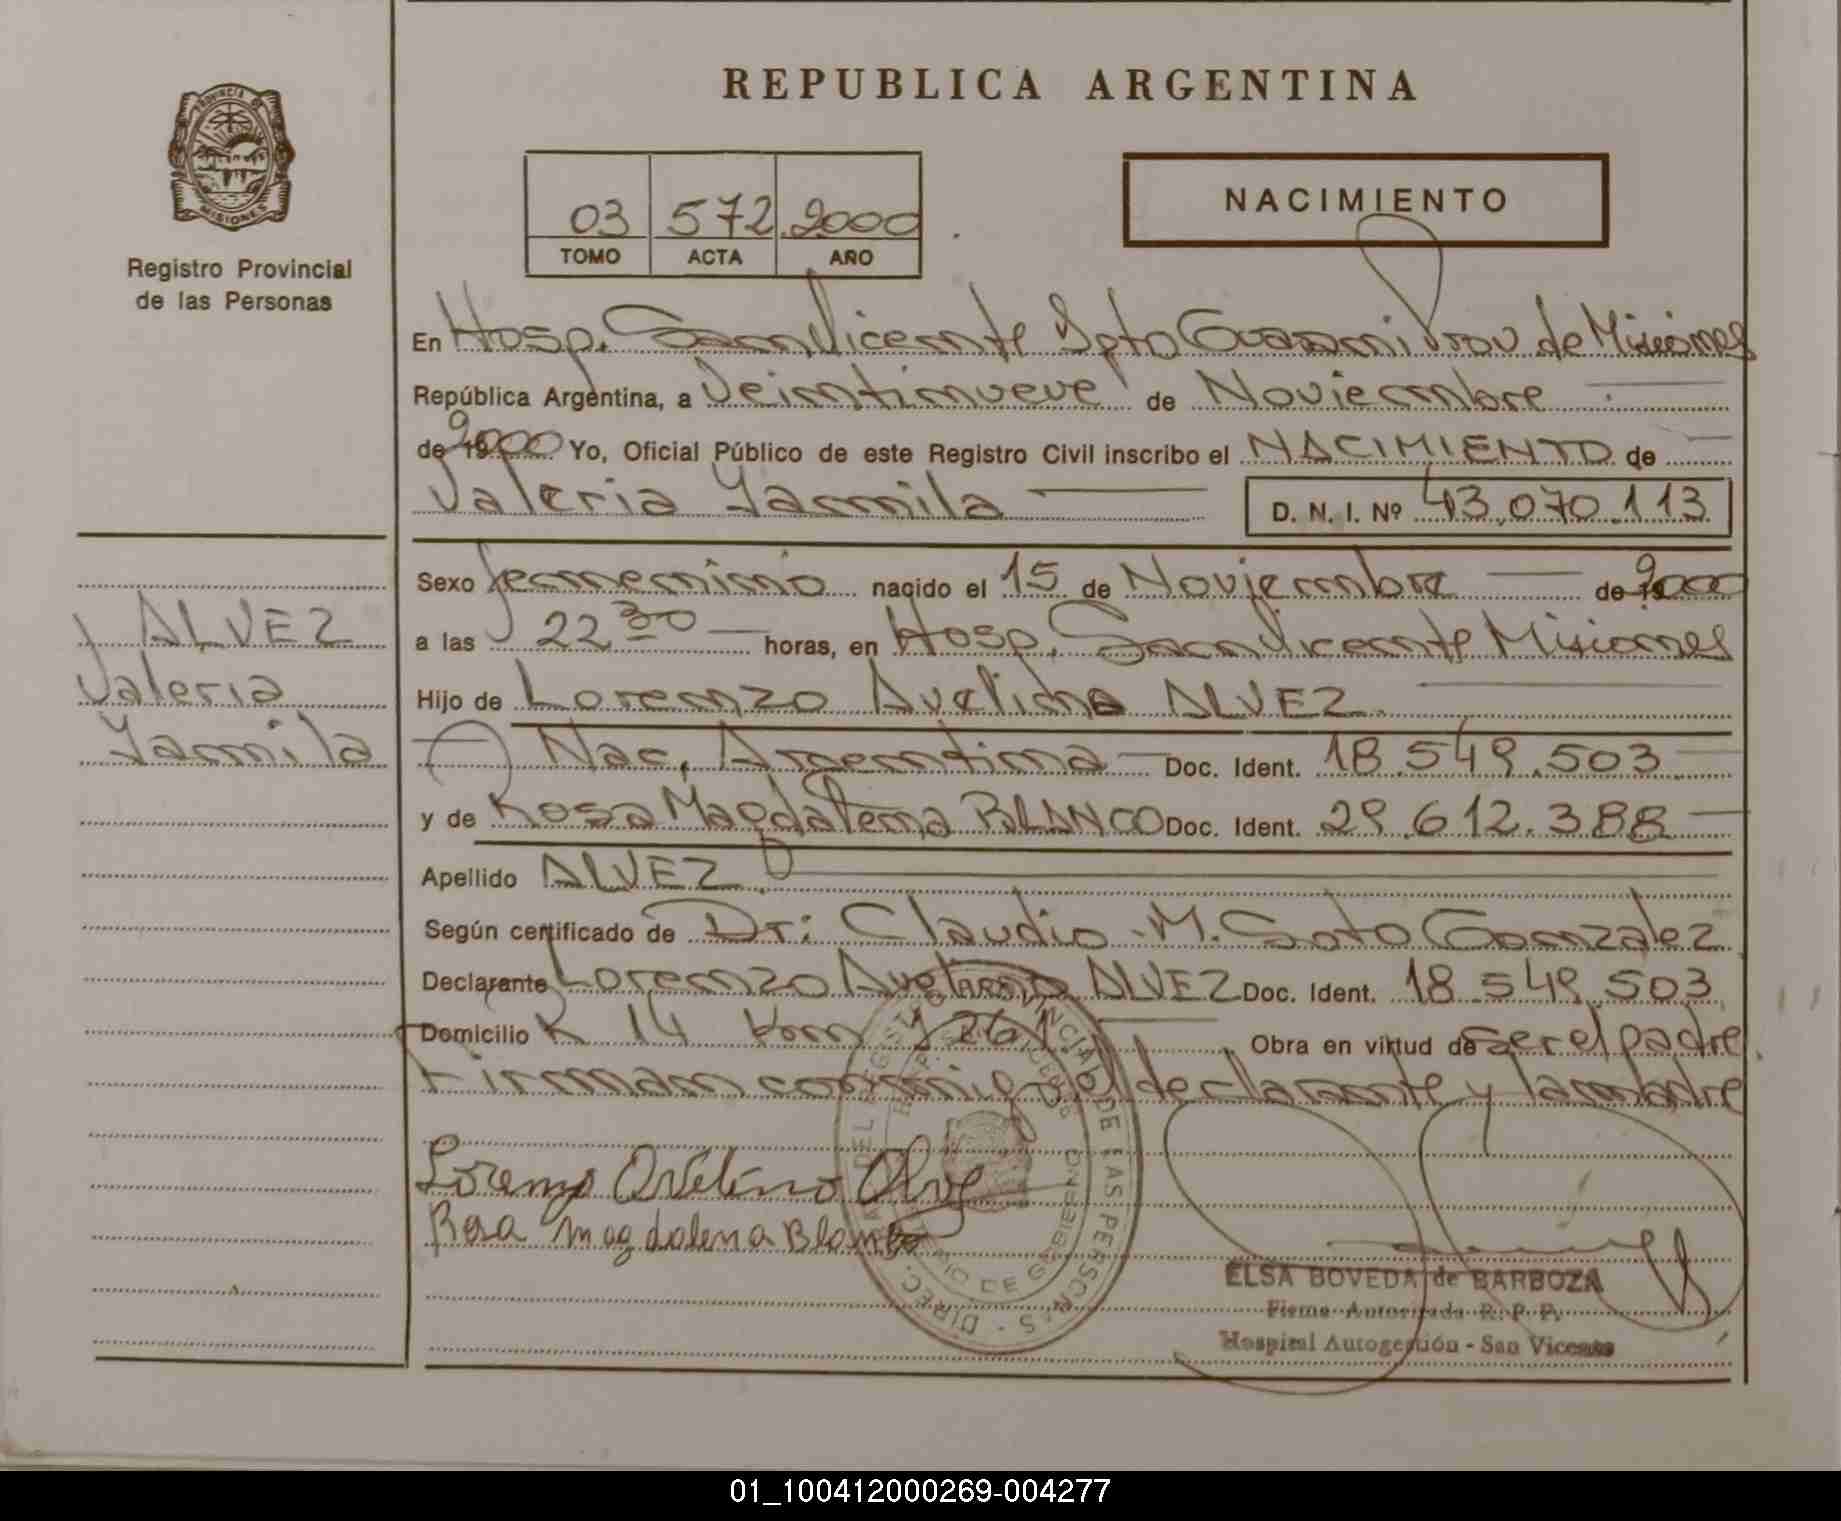 REPUBLICA ARGENTINA
PROVINCIA DE MISIONES
Registro Provincial
de las Personas
03 572 2000
TOMO ACTA AÑO
NACIMIENTO
En Hosp. San Vicente Dpto Guarani Prov de Misiones
República Argentina, a Veintinueve de Noviembre
de 192000 Yo, Oficial Público de este Registro Civil inscribo el NACIMIENTO de
Valeria Yamila D. N. I. Nº 43.070.113
Sexo femenino nacido el 15 de Noviembre de 2000
a las 22 30 horas, en Hosp. San Vicente Misiones
Hijo de Lorenzo Avelino ALVEZ
Nac. Argentina Doc. Ident. 18.549.503
y de Rosa Magdalena BLANCO Doc. Ident. 29.612.388
Apellido ALVEZ
Según certificado de Dr: Claudio M. Soto Gonzalez
Declarante Lorenzo Avelino ALVEZ Doc. Ident. 18.549.503
Domicilio R 14 Km 1261 Obra en virtud de ser el padre
Firman conmigo el declarante y la madre
ALVEZ
Valeria
Yamila
Lorenzo Avelino Alve
Rosa Magdalena Blanco
DIREC. DEL REGISTRO PROVINCIAL DE LAS PERSONAS
ELSA BOVEDA de BARBOZA
Firma Autorizada R. P. P.
Hospital Autogestión - San Vicente
01_100412000269-004277